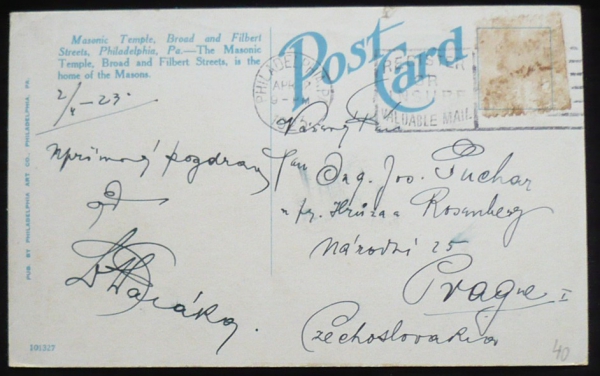 Masonic Temple, Broad and Filbert
Streets, Philadelphia, Pa.—The Masonic
Temple, Broad and Filbert Streets, is the
home of the Masons.
Post Card
PHILADELPHIA
APR
REGISTER
OR
INSURE
VALUABLE MAIL
2/4-23
Upřímný pozdrav
Vážený Pan
Pan Ing. Jos. Puchar
Hrůza a Rosenberg
Národní 25
Prague I
Czechoslovakia
40
PUB. BY PHILADELPHIA ART CO., PHILADELPHIA, PA.
101327